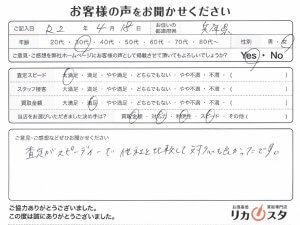 お客様の声をお聞かせください
ご記入日 R2 年 4 月 18 日 お住いの都道府県 兵庫県
年齢 20代・30代・40代・50代・60代・70代・80代〜 性別 男・女
ご意見・ご感想を弊社ホームページにお客様の声として掲載させて頂いてもよろしいでしょうか? Yes・No
査定スピード 大満足・満足・やや満足・どちらでもない・やや不満・不満
スタッフ接客 大満足・満足・やや満足・どちらでもない・やや不満・不満
買取金額 大満足・満足・やや満足・どちらでもない・やや不満・不満
当店をお選びいただきました決め手は? 買取金額・対応・利便性・スピード・その他
ご意見・ご感想などぜひお聞かせください
査定がスピーディーで他社と比較して対応も良かったです。
ご協力ありがとうございました。
この度は誠にありがとうございました。
お酒高価買取専門店
リカスタ